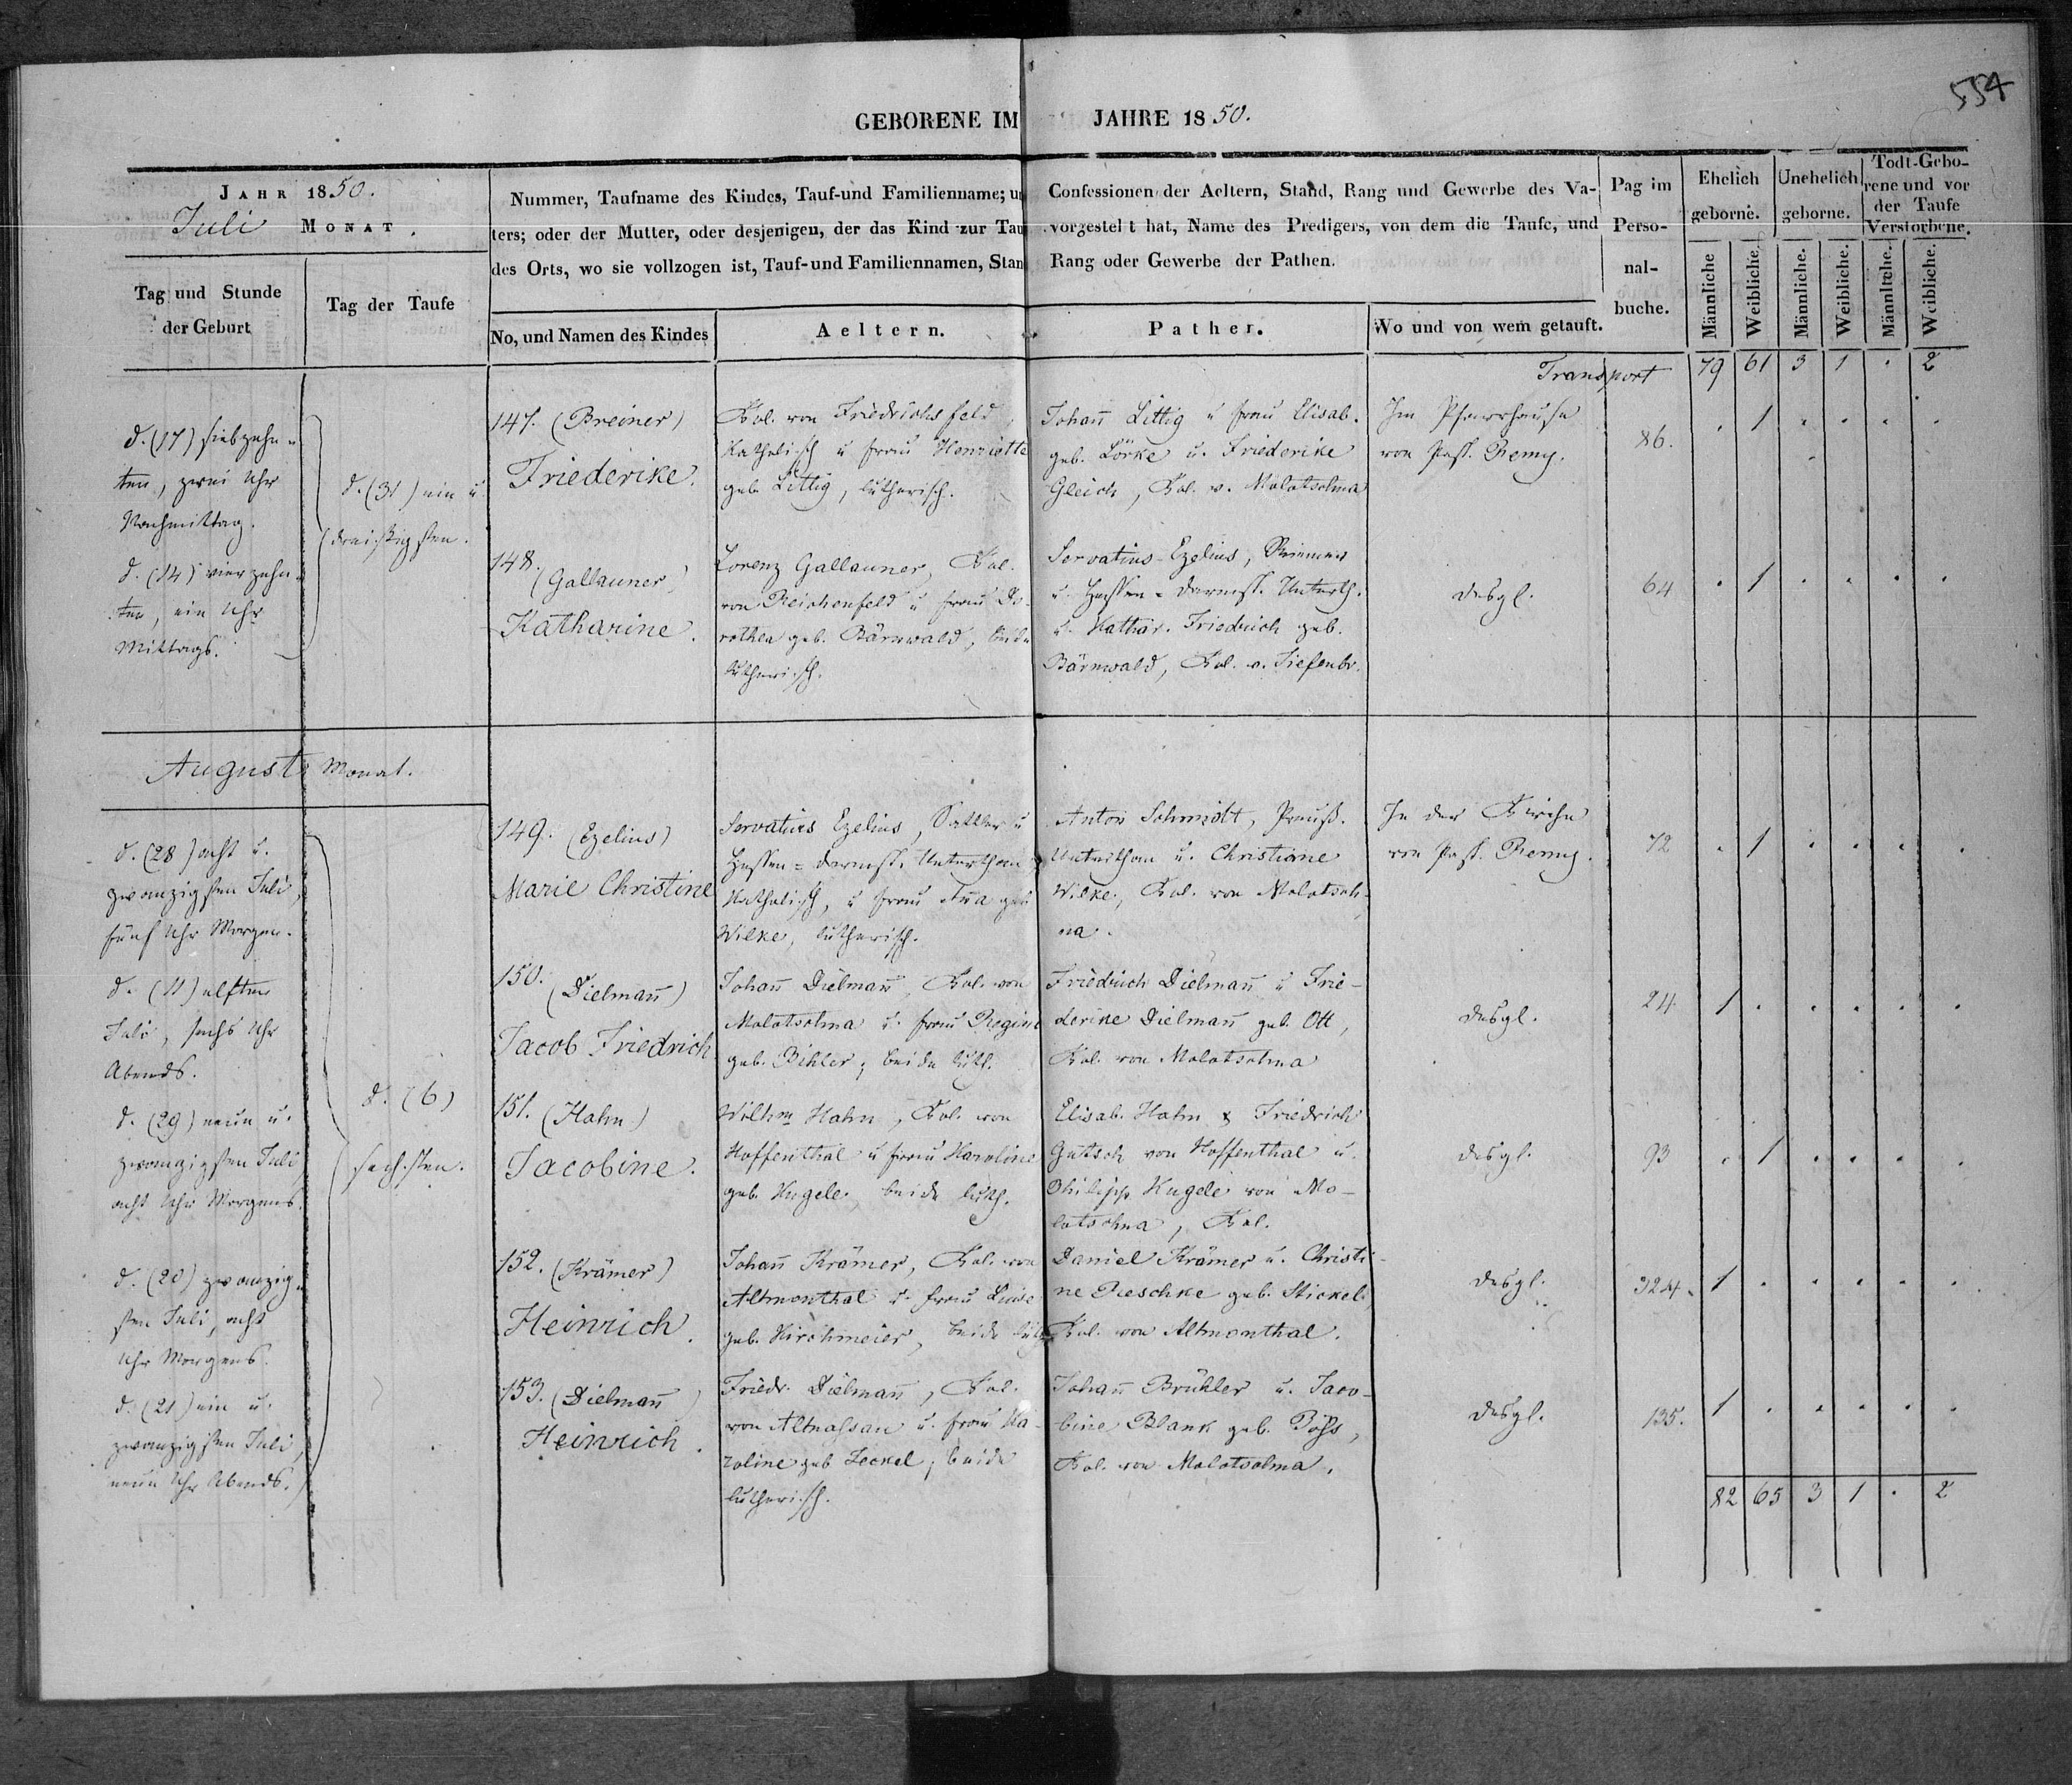 554
GEBORENE IM JAHRE 1850.
JAHR 1850.
Juli MONAT.
Tag und Stunde
der Geburt
Tag der Taufe
Nummer, Taufname des Kindes, Tauf-und Familienname; un
ters; oder der Mutter, oder desjenigen, der das Kind zur Tau
des Orts, wo sie vollzogen ist, Tauf-und Familiennamen, Stan
No, und Namen des Kindes
Aeltern.
Confessionen der Aeltern, Stand, Rang und Gewerbe des Va-
vorgestelt hat, Name des Predigers, von dem die Taufe, und
Rang oder Gewerbe der Pathen.
Pather.
Wo und von wem getauft.
Pag im
Perso-
nal-
buche.
Ehelich
geborne.
Unehelich
geborne.
Todt-Gebo-
rene und vor
der Taufe
Verstorbene.
Männliche
Weibliche.
Männliche.
Weibliche.
Männliche.
Weibliche.
Transport 79 61 3 1 . 2
d. (17) siebzehn-
ten, zwei Uhr
Nachmittag.
d. (31) ein u
dreißigsten.
147. (Breiner)
Friederike.
Kol. von Friedrichsfeld,
Katholisch u Frau Henriette
geb. Littig, lutherisch.
Johañ Littig u Frau Elisab.
geb. Lörke u. Friederike
Gleich, Kol. v. Molotschna
Im Pfarrhause
von Past. Remy.
86.
. 1 . . . .
d. (14) vierzehn-
ten, ein Uhr
Mittags.
148.
(Gallauner)
Katharine.
Lorenz Gallauner, Kol.
von Reichenfeld u Frau Do-
rothea geb. Bärnwald, beide
lutherisch.
Servatius Ezelius,
u. Hessen-Darmst. Unterth.
u. Kathar. Friedrich geb.
Bärnwald, Kol. v. Tiefenbr.
desgl.
64
. 1 . . . .
August Monat.
d. (28) acht u.
zwanzigsten Juli,
fünf Uhr Morgen.
149. (Ezelius)
Marie Christine
Servatius Ezelius, Sattler u
Hessen-Darmst. Unterthan
Katholisch, u Frau Aña geb
Wilke, lutherisch.
Anton Schmidt, Preuß.
Unterthan u. Christiane
Wilke, Kol. von Molotsch-
na.
In der Kirche
von Past. Remy.
72
. 1 . . . .
d. (11) elften
Juli, sechs Uhr
Abends.
150.
(Dielmañ)
Jacob Friedrich
Johañ Dielmañ, Kol. von
Molotschna u. Frau Regine
geb. Bihler; beide luth.
Friedrich Dielmañ u Frie-
derike Dielmañ geb. Ott,
Kol. von Molotschna
desgl.
24
1 . . . . .
d. (6)
sechsten.
d. (29) neun u.
zwanzigsten Juli
acht Uhr Morgens.
151. (Hahn)
Jacobine.
Wilhm Hahn, Kol. von
Hoffenthal u Frau Karoline
geb. Kugele, beide luth.
Elisab. Hahn & Friedrich
Gutsch von Hoffenthal u.
Philipp Kugele von Mo-
lotschna, Kol.
desgl.
93
. 1 . . . .
d. (20) zwanzig-
sten Juli, acht
Uhr Morgens.
152. (Krämer)
Heinrich.
Johañ Krämer, Kol. von
Altmonthal u. Frau Luise
geb. Kirschmeier, beide luth
Daniel Krämer u. Christi-
ne Pieschke geb. Stickel.
Kol. von Altmonthal.
desgl.
324.
1 . . . . .
d. (21) ein u.
zwanzigsten Juli,
neun Uhr Abends.
153. (Dielmañ)
Heinrich.
Friedr. Dielmañ, Kol.
von Altnassau u. Frau Ka-
roline geb Jeckel, beide
lutherisch.
Johañ Brühler u. Jaco-
bine Blank geb. Pöhs,
Kol. von Molotschna.
desgl.
135.
1 . . . . .
82 65 3 1 . 2